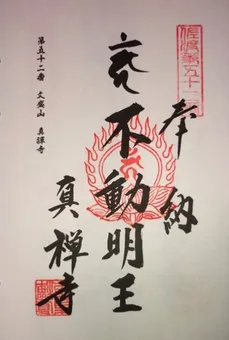 佐渡第五十二番
奉納
不動明王
真禅寺
第五十二番 文殊山 真禅寺